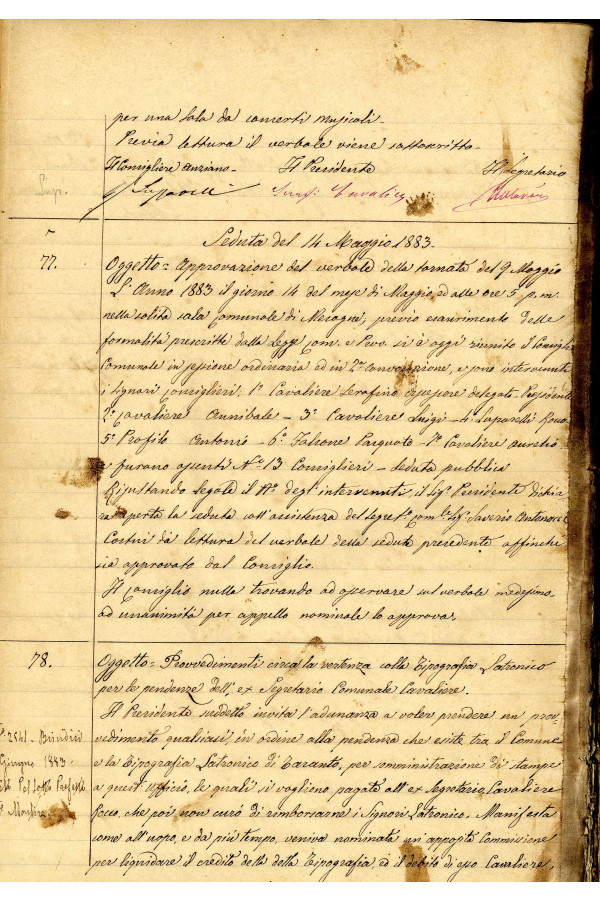 per una sala da concerti musicali_
Previa lettura il verbale viene sottoscritto_
Il Consigliere Anziano_ Il Presidente Il Segretario
Seraf: Cavaliere
Sup.
5
Seduta del 14 Maggio 1883_
77.
Oggetto= Approvazione del verbale della tornata del 9 Maggio
L'Anno 1883 il giorno 14 del mese di Maggio, ed alle ore 5 p. m.
nella solita sala Comunale di Mesagne, previo esaurimento delle
formalità prescritte dalla Legge Com. e Prov. si è oggi riunito il Consiglio
Comunale in sessione ordinaria ed in 2ª convocazione, e sono intervenuti
i Signori Consiglieri: 1º Cavaliere Serafino Assessore delegato Presidente
2º Cavaliere Annibale_ 3º Cavaliere Luigi_ 4º Suparelli
5º Profilo Antonio_ 6º Falcone Pasquale_ 7º Cavaliere Aurelio
e furono assenti Nº 13 Consiglieri_ Seduta pubblica
Risultando legale il Nº degl'intervenuti, il Sigr Presidente dichia
ra aperta la seduta coll'assistenza del Segret.º Com.le Sigr Saverio
Costui dà lettura del verbale della seduta precedente affinchè
sia approvato dal Consiglio.
Il Consiglio nulla trovando ad osservare sul verbale medesimo
ad unanimità per appello nominale lo approva.
78.
Oggetto= Provvedimenti circa la vertenza colla Tipografia Latronico
per le pendenze dell'ex Segretario Comunale Cavaliere.
Il Presidente suddetto invita l'adunanza a voler prendere un prov-
vedimento qualsiasi, in ordine alla pendenza che esiste tra il Comune
e la Tipografia Latronico di Taranto, per somministrazione di stampe
a quest'ufficio, le quali si vogliono pagate all'ex Segretario Cavaliere
che poi non curò di rimborsarne i Signori Latronico. Manifesta
come all'uopo, e da più tempo, veniva nominata un'apposita Commissione
per liquidare il credito della detta Tipografia, ed il debito di esso Cavaliere,
2541_ Brindisi
Giugno 1883_
Il Sotto Prefetto